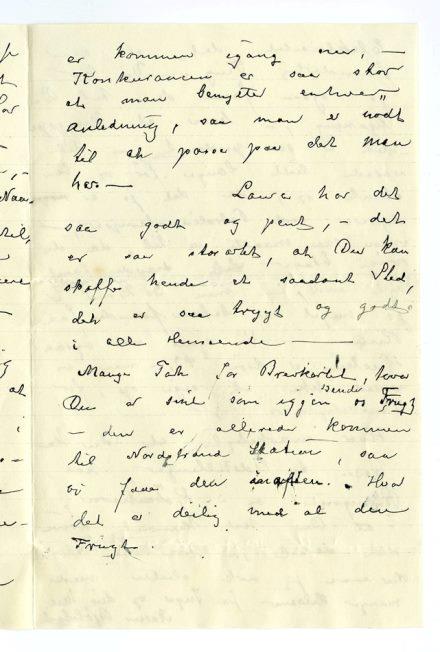 er kommen igang mer, —
Konkurancen er saa stor
at man benytter enhver
anledning, saa man er nødt
til at passe paa det man
har —   Laura har det
saa godt og pent, — det
er saa storartet, at Du kan
skaffe hende et saadant Sted,
det er saa trygt og godt
i alle Henseende —
Mange Tak for Brevkortet, hvor
Du er snil som igjen sender os Frugt
— den er allerede kommen
til Nordstrand Station, saa
vi faar den inaften. Hvor
det er deilig med al den
Frugt.